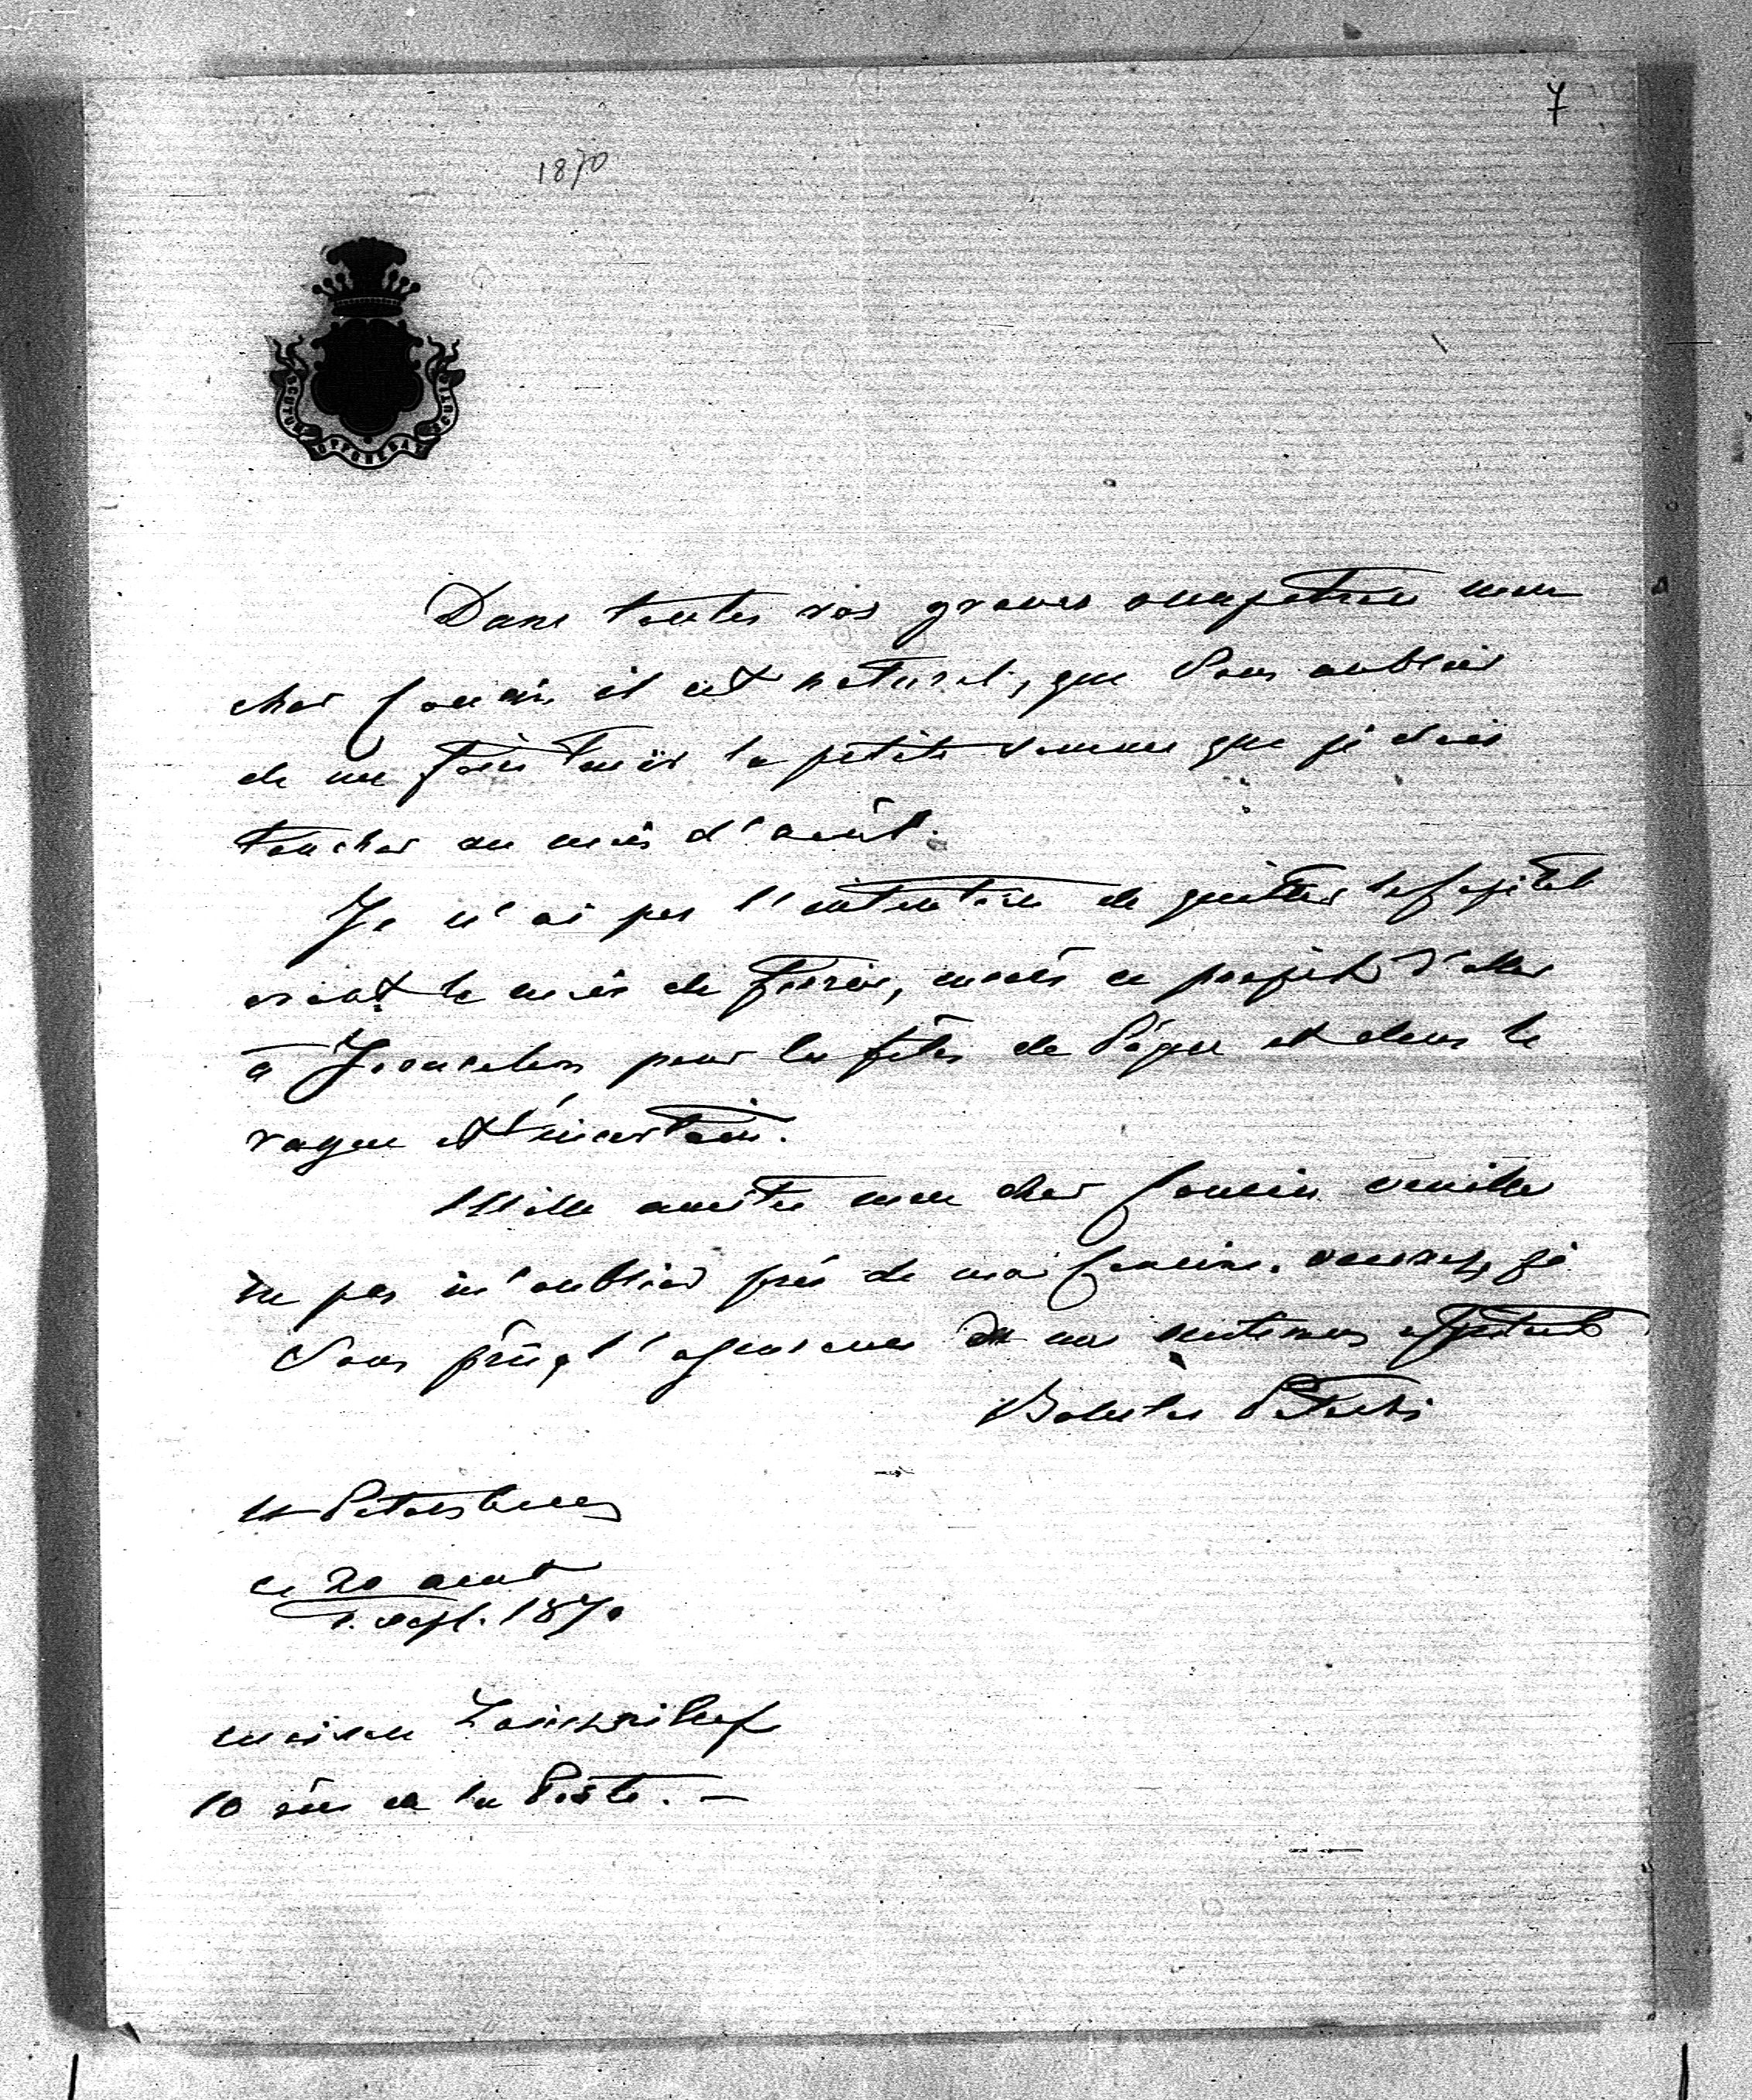 7
1870
SCUTUM OPPONEBAT SCUTIS
Dans toutes vos graves occupations mon
cher Cousin il est naturel, que Vous oubliez
de me faire tenir la petite somme que je dois
toucher au mois d'août.
Je n'ai pas l'intention de quitter la Capitale
avant le mois de Fevrier, mais ce projet d'aller
à Jerusalem pour les fêtes de Pâque est dans le
vague et l'incertain.
Mille amitiés mon cher Cousin veuillez
ne pas m'oublier près de ma Cousine. recevez, je
Vous prie, l'assurance de mes sentimens affectueux
Boleslas Potocki
St Petersbourg
ce 20 aout
1. sept. 1870
maison
10 rue de la Poste. —